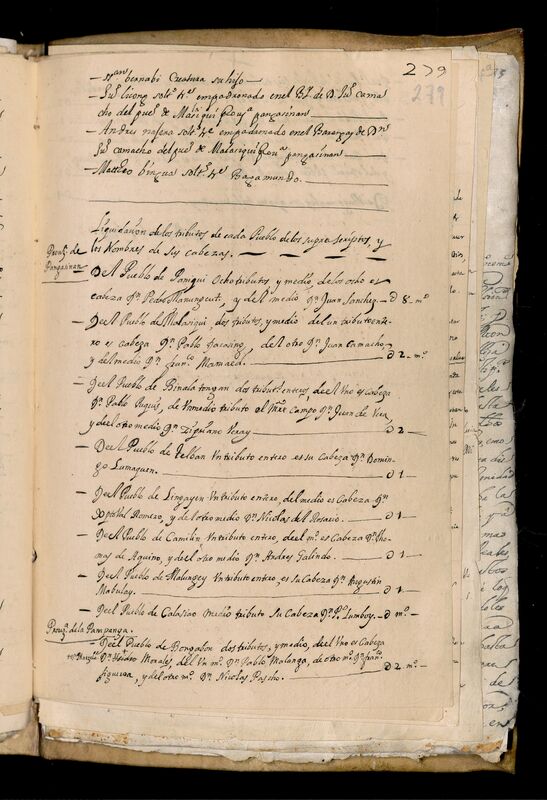 279
279
— Juan bernabi Creatura su hijo —
— Ju.º solt.º tt.e empadronado en el B.l de D. Ju.º cama
cho del pue.º de Malasiqui Prov.a pangasinan
— Andres solt.º tt.e empadronado en el Barangay de D.n
Ju.º camacho del pue.º de Malasiqui Prov.a pangasinan
— Matheo solt.º tt.e Bagamundo.
Liquidaçion de los tributos de cada Pueblo de los supra scriptos, y
los Nombres de sus cabezas. — — — —
Prou.ª de
Pangasinan
— Del Pueblo de Paniqui Ocho tributos y medio, de los ocho es
cabeza D.n Pedro Manungcuti, y del medio D.n Juan Sanchez — d 8 – m.º
— Del Pueblo de Malasiqui dos tributos, y medio del un tributo ente-
ro es cabeza D.n Pablo, del otro D.n Juan Camacho,
y del medio D.n fran.co — d 2 – m.º
— Del Pueblo de Binalatongan dos tributos enteros, del Vno es Cabeza
D.n Pablo, de Vn medio tributo el M.re Campo D.n Juan de Vera
y del otro medio D.n Zipriano Veray — d 2 —
— Del Pueblo de Telban Vn tributo entero es su Cabeza D.n Domin-
go Lumaguen. — d 1 —
— Del Pueblo de Lingayen Vn tributo entero, del medio es Cabeza D.n
Xptoual Romero, y del otro medio D.n Nicolas del Rosario. — d 1 —
— Del Pueblo de Camilin Vn tributo entero, del m.º es Cabeza D.n tho-
mas de Aquino, y del otro medio D.n Andres Galindo. — d 1 —
— Del Pueblo de Malungey Vn tributo entero, es su Cabeza D.n Augustin
Mabulay. — d 1 —
— Del Pueblo de Calasiao medio tributo su Cabeza D.n P.º Lumboy. — d m.º —
Prou.ª de la Pampanga.
— Del Pueblo de Bongabon dos tributos, y medio, del Vno es Cabeza
D.n Isidro Morales, del Vn m.º D.n Pablo Malanga, de otro m.º D.n fran.co
Figueroa, y del otro m.º D.n Nicolas Pascho. — d 2 m.º —